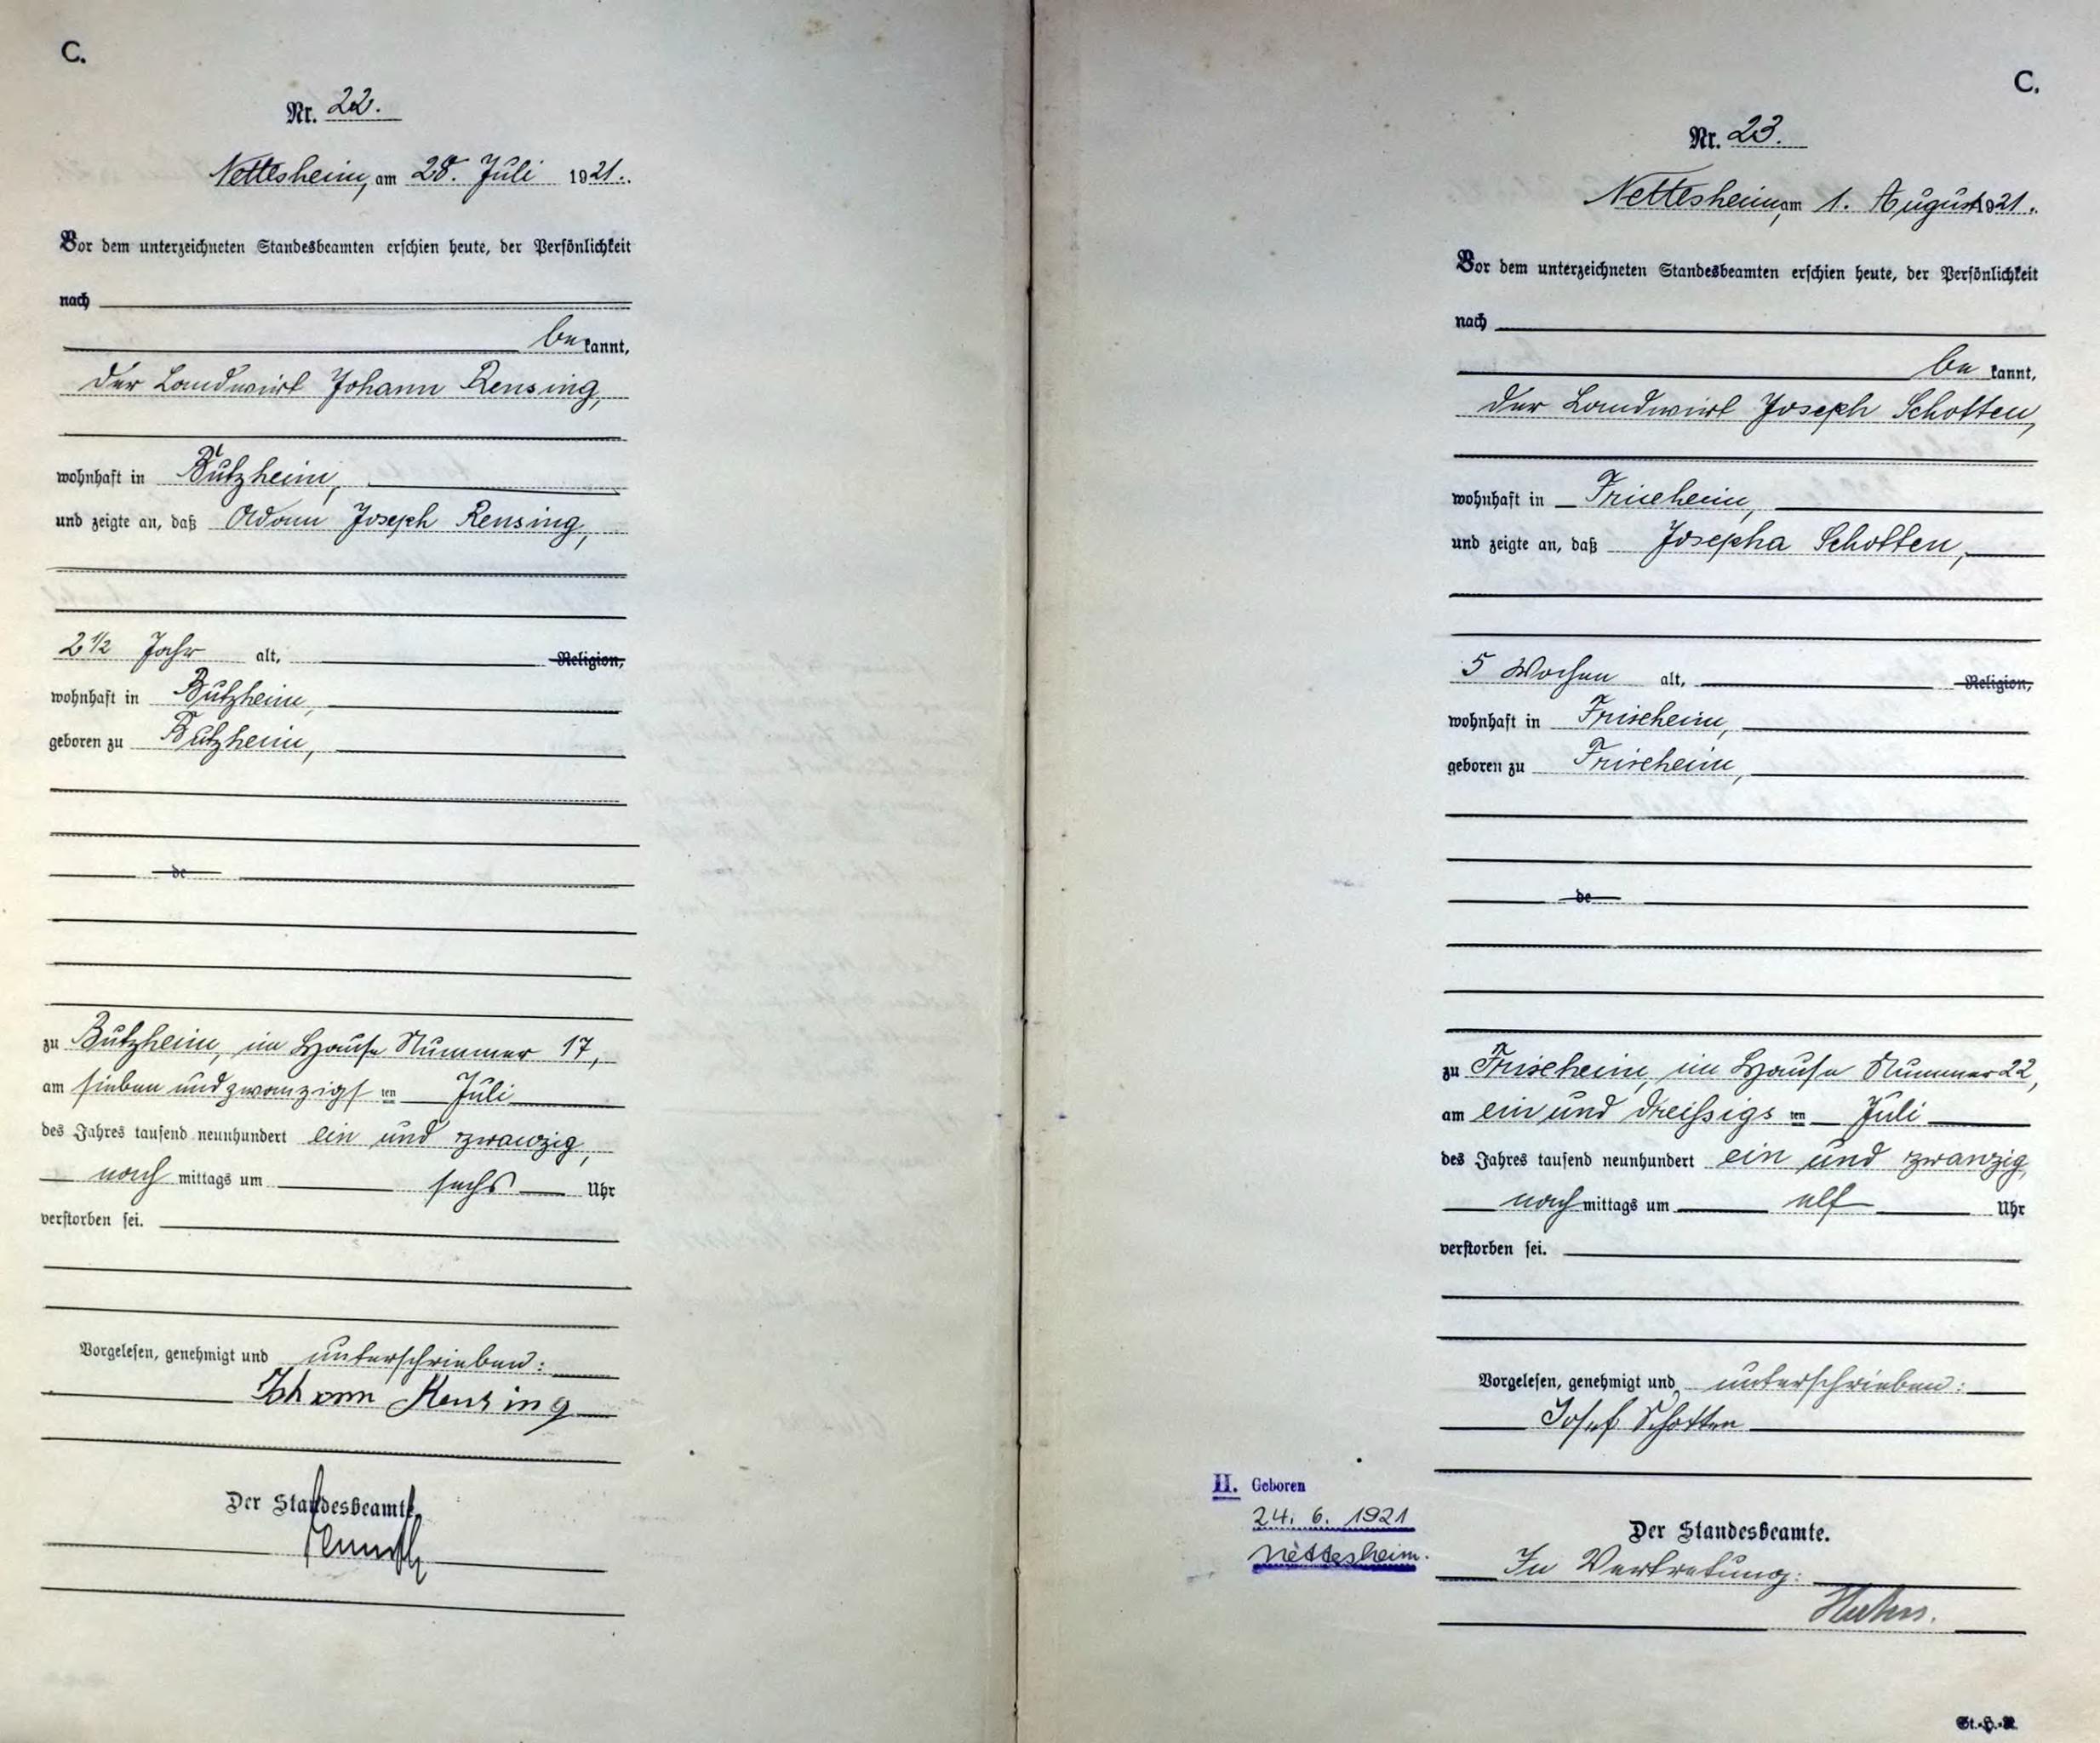 C.
Nr. 22.
Nettesheim, am 28. Juli 1921.
Vor dem unterzeichneten Standesbeamten erschien heute, der Persönlichkeit
nach
be kannt,
der Landwirt Johann Rensing,
wohnhaft in Butzheim,
und zeigte an, daß Adam Joseph Rensing,
2 1/2 Jahr alt, Religion,
wohnhaft in Butzheim,
geboren zu Butzheim,
de
zu Butzheim, im Hause Nummer 17,
am sieben und zwanzigsten Juli
des Jahres tausend neunhundert ein und zwanzig,
nach mittags um sechs Uhr
verstorben sei.
Vorgelesen, genehmigt und unterschrieben:
Johann Rensing
Der Standesbeamte.
C.
Nr. 23.
Nettesheim, am 1. August 1921.
Vor dem unterzeichneten Standesbeamten erschien heute, der Persönlichkeit
nach
be kannt,
der Landwirt Joseph Schotten,
wohnhaft in Frixheim,
und zeigte an, daß Josepha Schotten,
5 Wochen alt, Religion,
wohnhaft in Frixheim,
geboren zu Frixheim,
de
zu Frixheim, im Hause Nummer 22,
am ein und dreißigsten Juli
des Jahres tausend neunhundert ein und zwanzig,
nach mittags um elf Uhr
verstorben sei.
Vorgelesen, genehmigt und unterschrieben:
Josef Schotten
Der Standesbeamte.
In Vertretung:
II. Geboren
24. 6. 1921
Nettesheim.